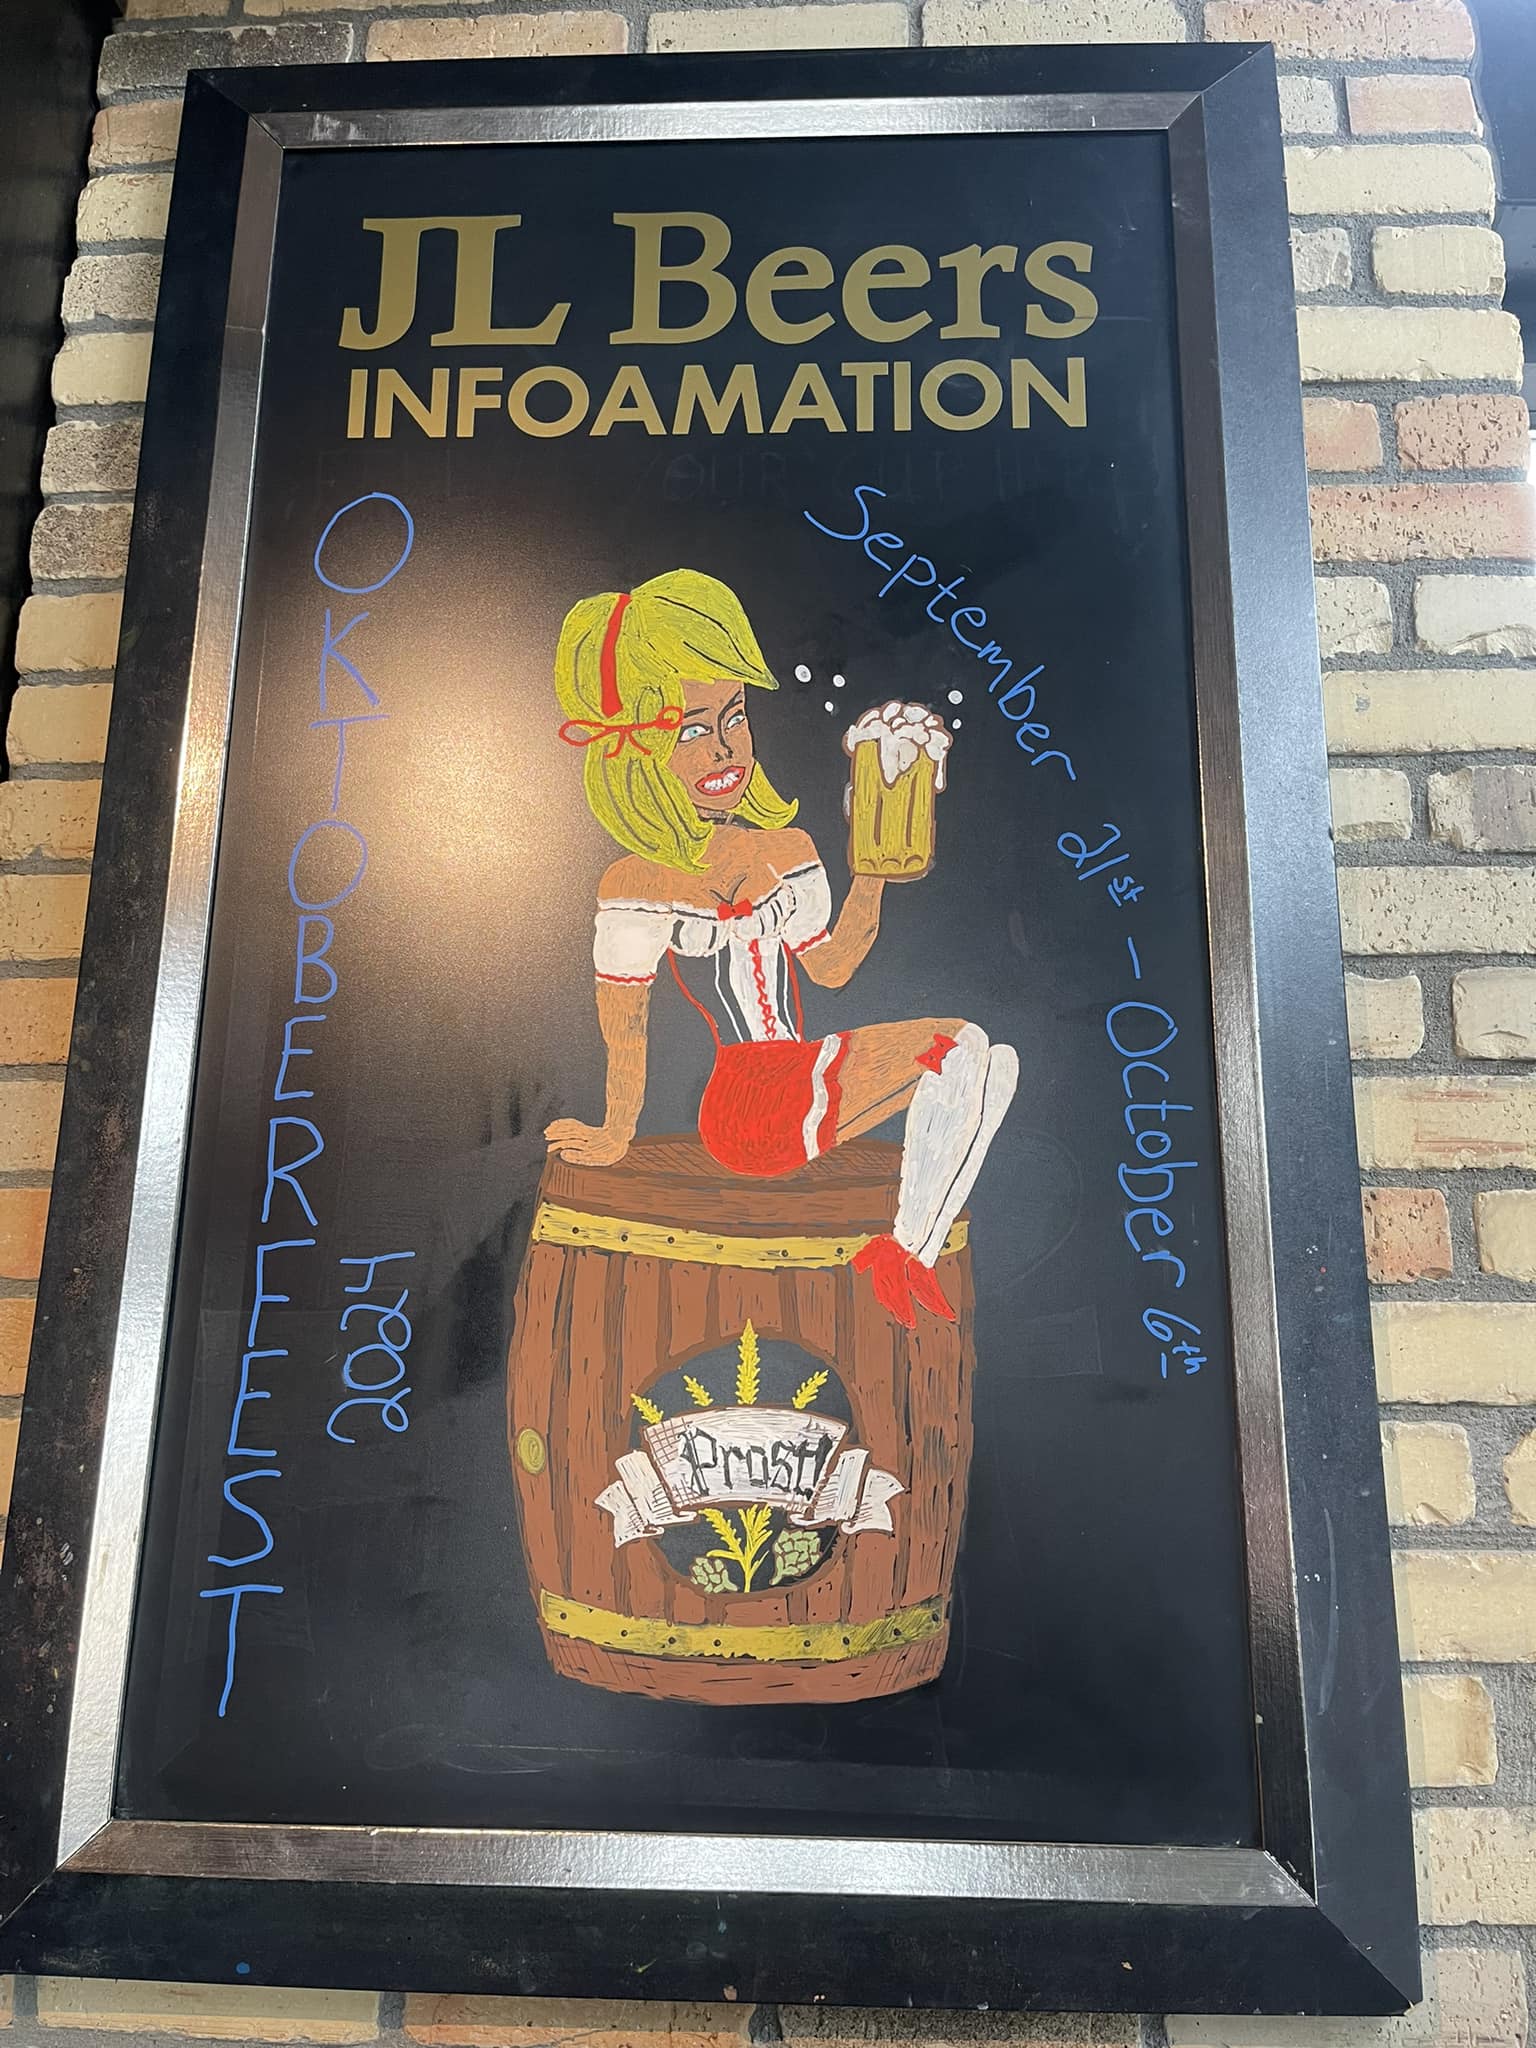 JL Beers
INFOAMATION
OKTOBERFEST
2024
September 21st - October 6th
Prost!